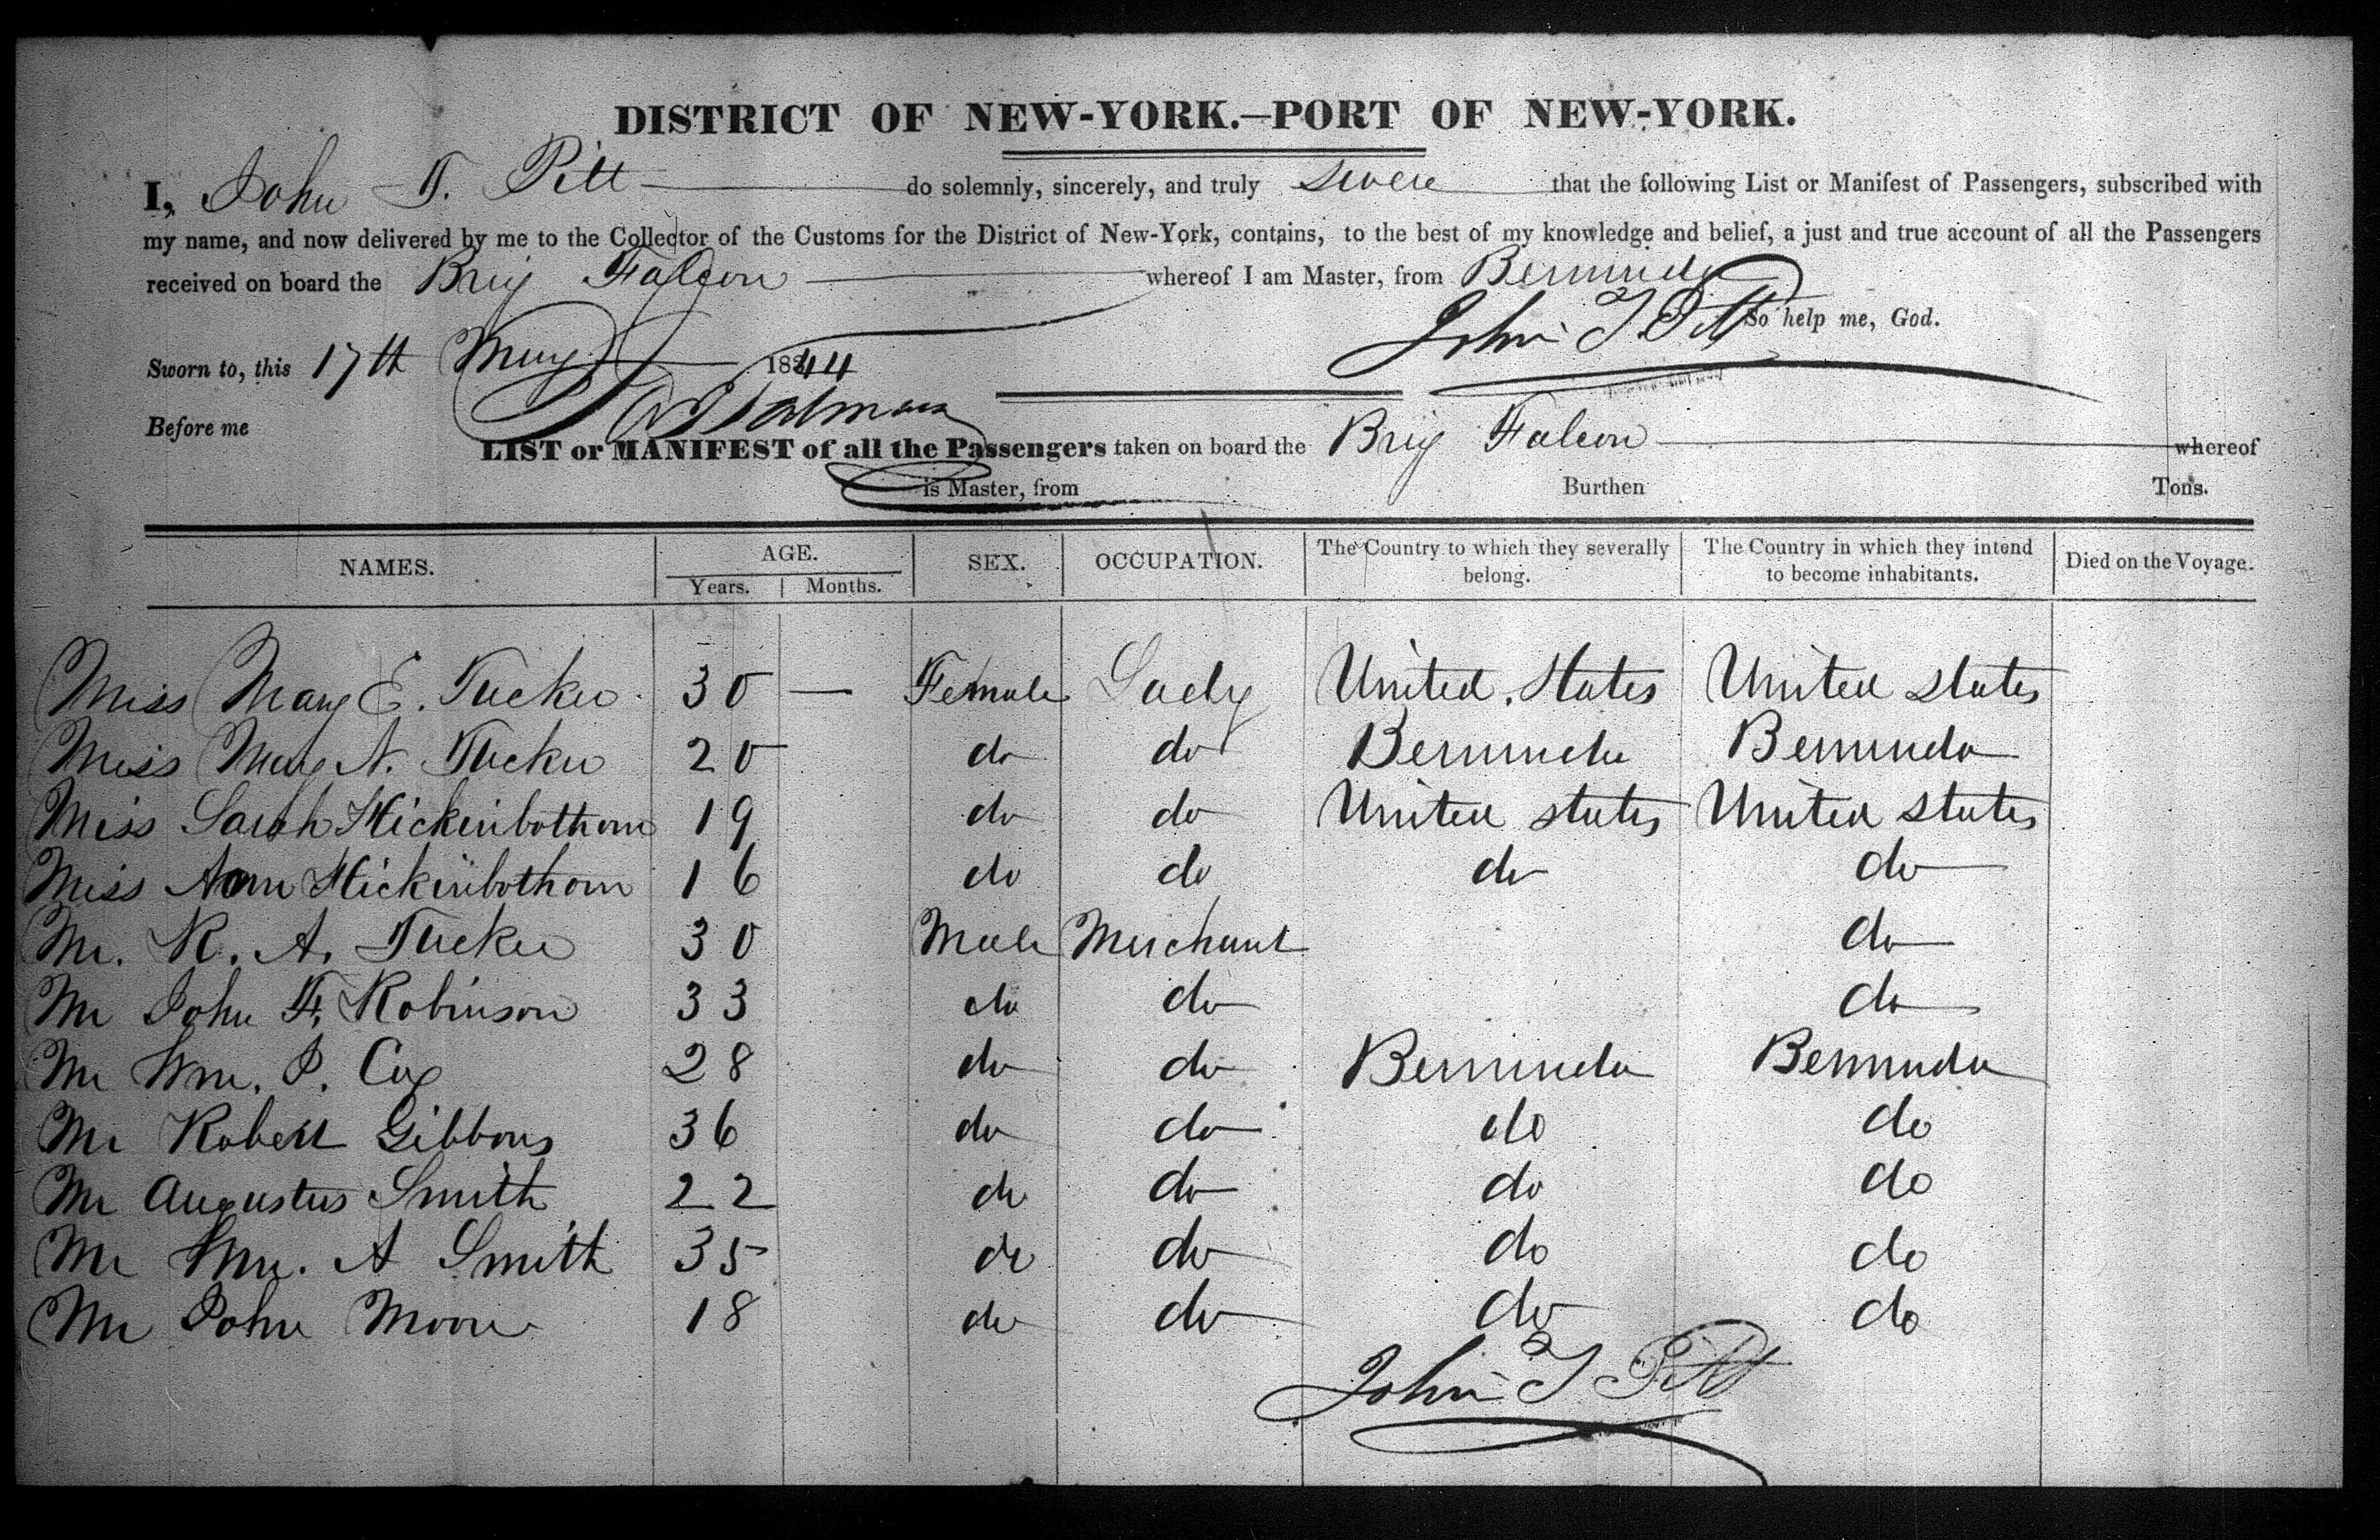 DISTRICT OF NEW-YORK.—PORT OF NEW-YORK.
I, John T. Pitt do solemnly, sincerely, and truly swere that the following List or Manifest of Passengers, subscribed with
my name, and now delivered by me to the Collector of the Customs for the District of New-York, contains, to the best of my knowledge and belief, a just and true account of all the Passengers
received on board the Brig Falcon whereof I am Master, from Bermuda
John T Pitt So help me, God.
Sworn to, this 17th May 1844
Before me
LIST or MANIFEST of all the Passengers taken on board the Brig Falcon whereof
is Master, from Burthen Tons.
NAMES. AGE. SEX. OCCUPATION. The Country to which they severally belong. The Country in which they intend to become inhabitants. Died on the Voyage.
Years. Months.
Miss Mary E. Tucker 30 — Female Lady United States United States
Miss Mary N. Tucker 20 do do Bermuda Bermuda
Miss Sarah Hickinbothom 19 do do United States United States
Miss Ann Hickinbothom 16 do do do do
Mr. R. A. Tucker 30 Male Merchant do
Mr John F. Robinson 33 do do do
Mr Wm. P. Cox 28 do do Bermuda Bermuda
Mr Robert Gibbons 36 do do do do
Mr Augustus Smith 22 do do do do
Mr Wm. A Smith 35 do do do do
Mr John Moore 18 do do do do
John T Pitt